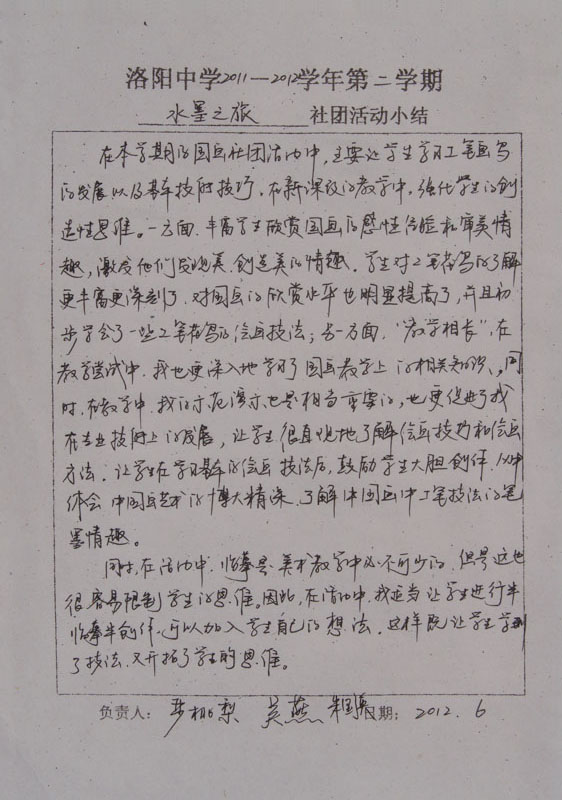 洛阳中学2011—2012学年第二学期
水墨之旅 社团活动小结
在本学期的国画社团活动中,主要让学生学习工笔画鸟
的发展以及基本技能技巧。在新课改的教学中,强化学生的创
造性思维。一方面,丰富学生欣赏国画的感性经验和审美情
趣,激发他们发现美、创造美的情趣。学生对工笔花鸟的了解
更丰富更深刻了,对国画的欣赏水平也明显提高了,并且初
步学会了一些工笔花鸟的绘画技法;另一方面,“教学相长”,在
教学尝试中,我也更深入地学习了国画教学上的相关知识、同
时,在教学中,我的示范演示也是相当重要的,也更促进了我
在专业技能上的发展,让学生很直观地了解绘画技巧和绘画
方法。让学生在学习基本的绘画技法后,鼓励学生大胆创作,从中
体会中国画艺术的博大精深,了解中国画中工笔技法的笔
墨情趣。
同时,在活动中,临摹是美术教学中必不可少的,但是这也
很容易限制学生的思维。因此,在活动中,我应当让学生进行半
临摹半创作,可以加入学生自己的想法。这样既让学生学到
了技法,又开拓了学生的思维。
负责人: 梨 吴燕 日期: 2012.6